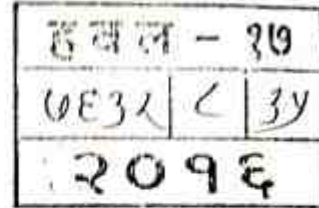 हवल - १७
७६३२ ८ ३५
२०१६